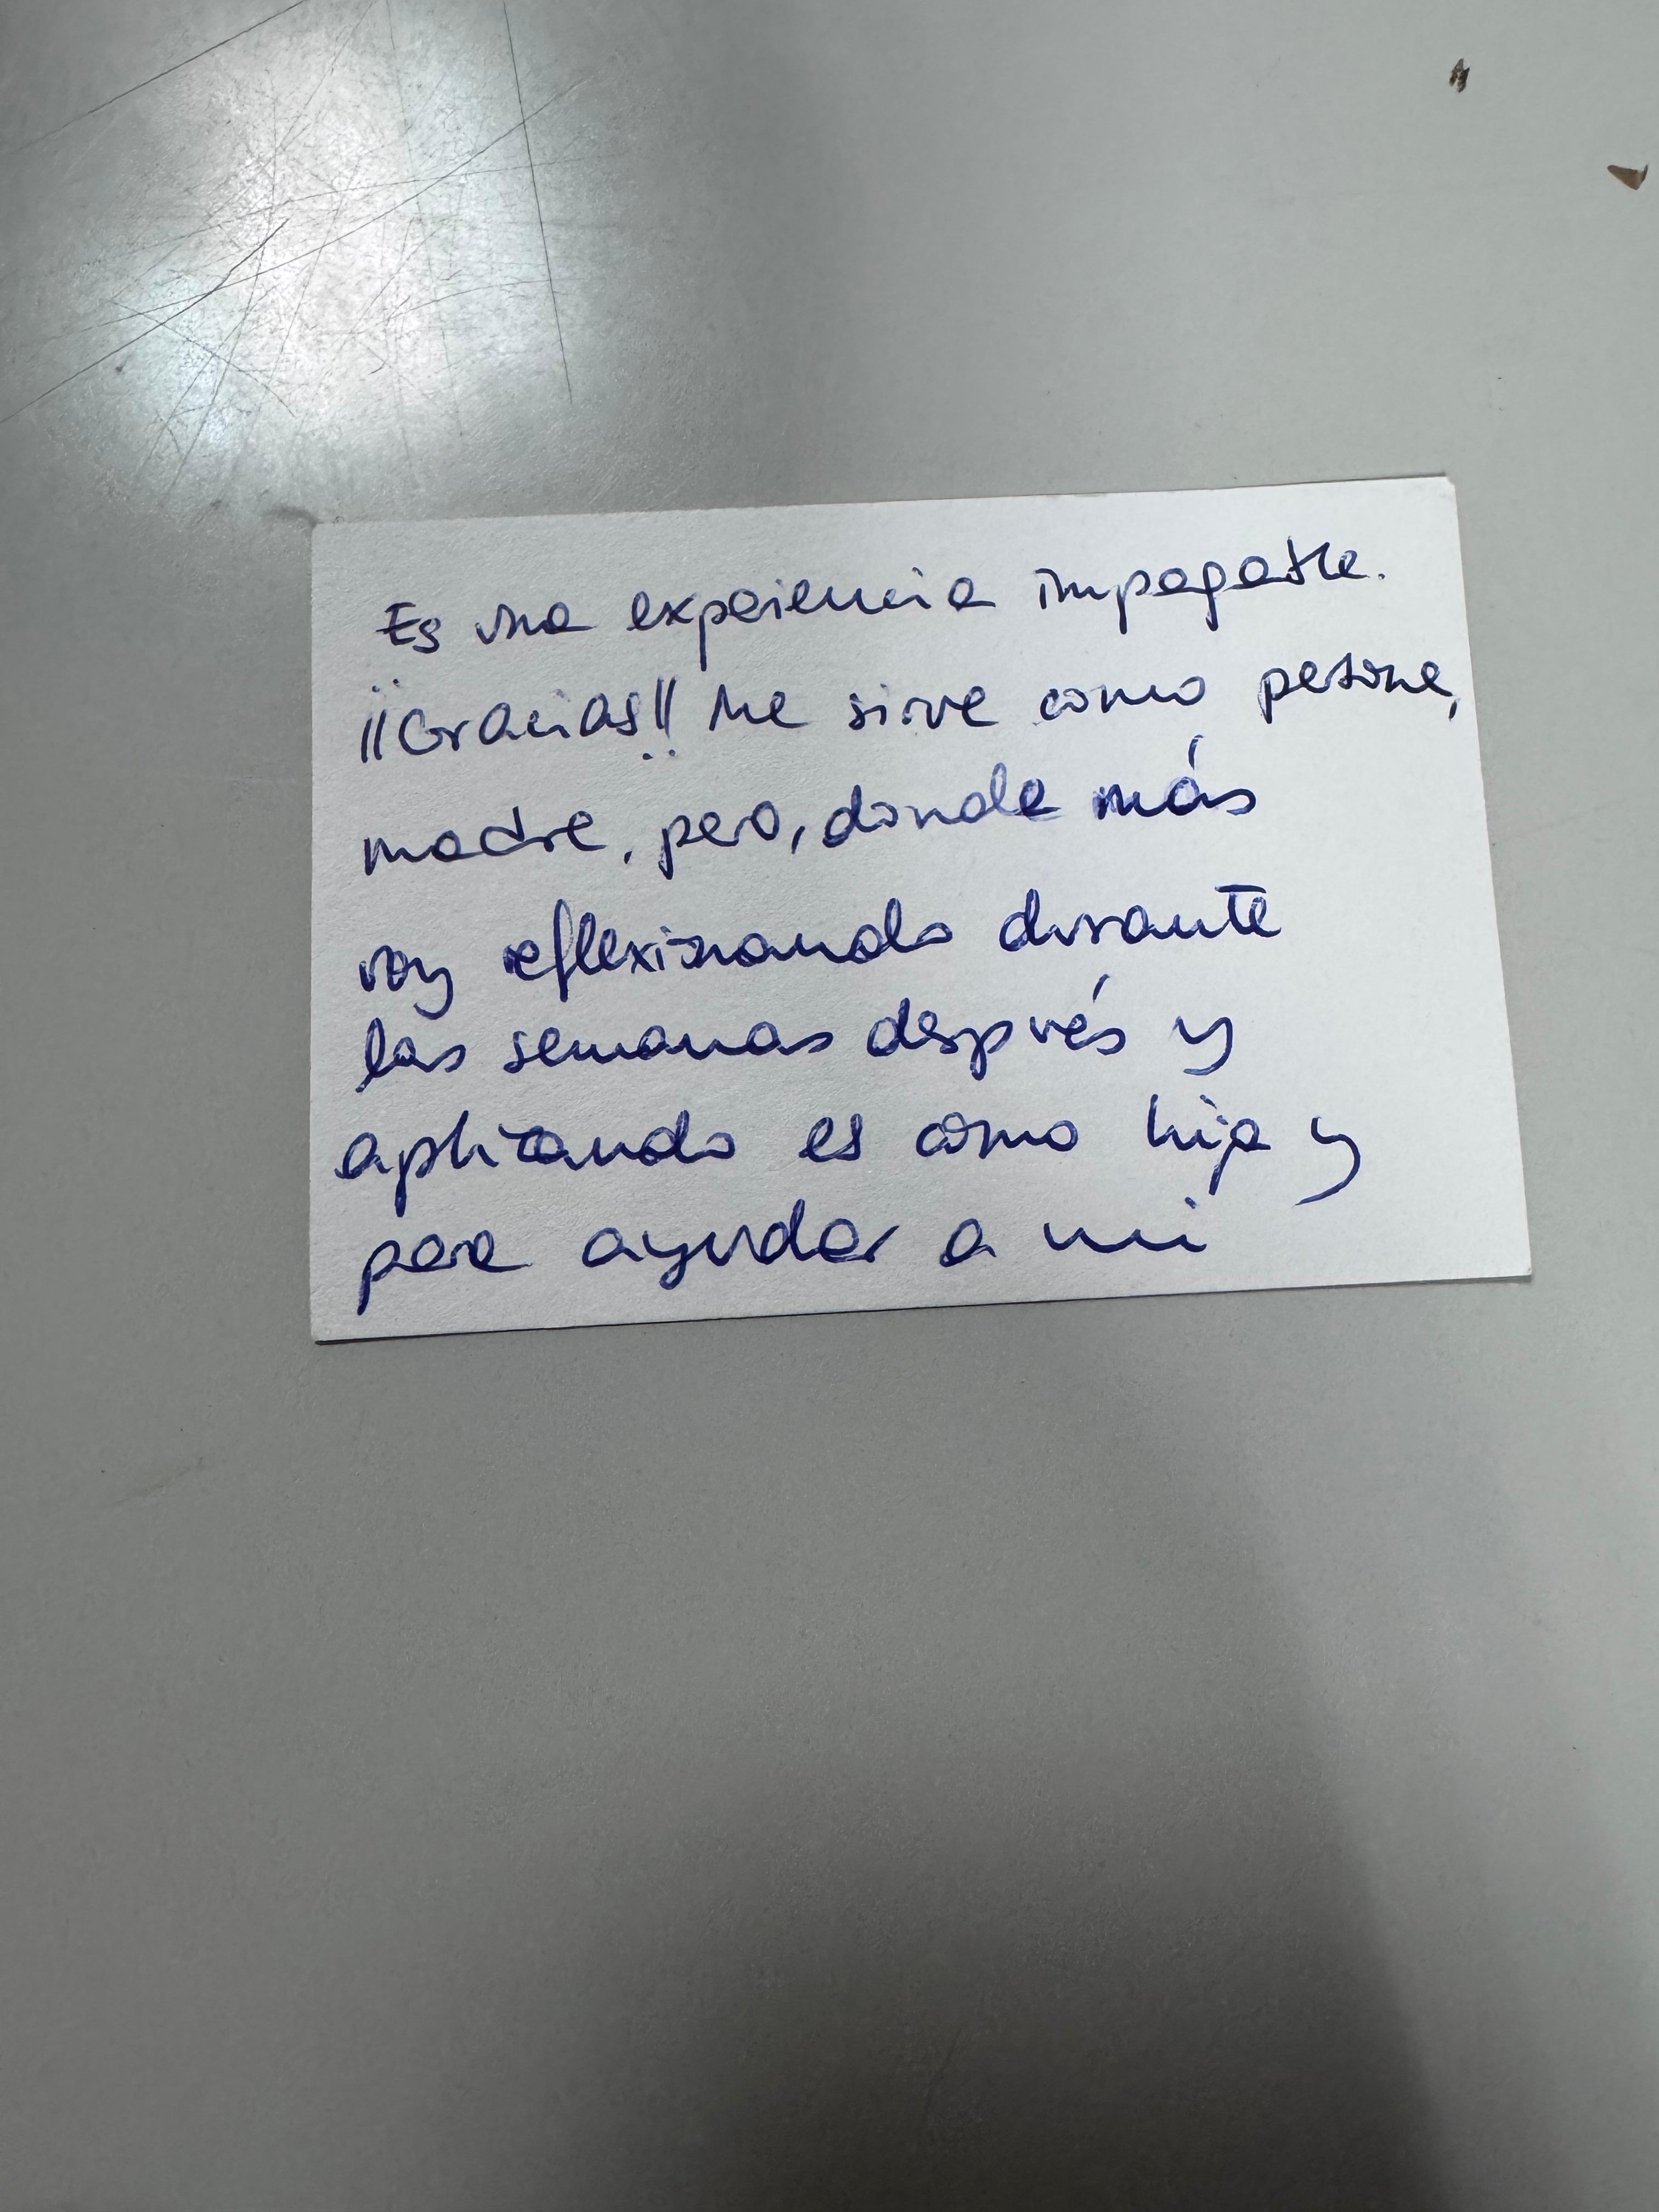 Es una experiencia impagable.
¡¡Gracias!! Me sirve como persona,
madre, pero, donde más
voy reflexionando durante
las semanas después y
aplicando es como hija y
para ayudar a mi